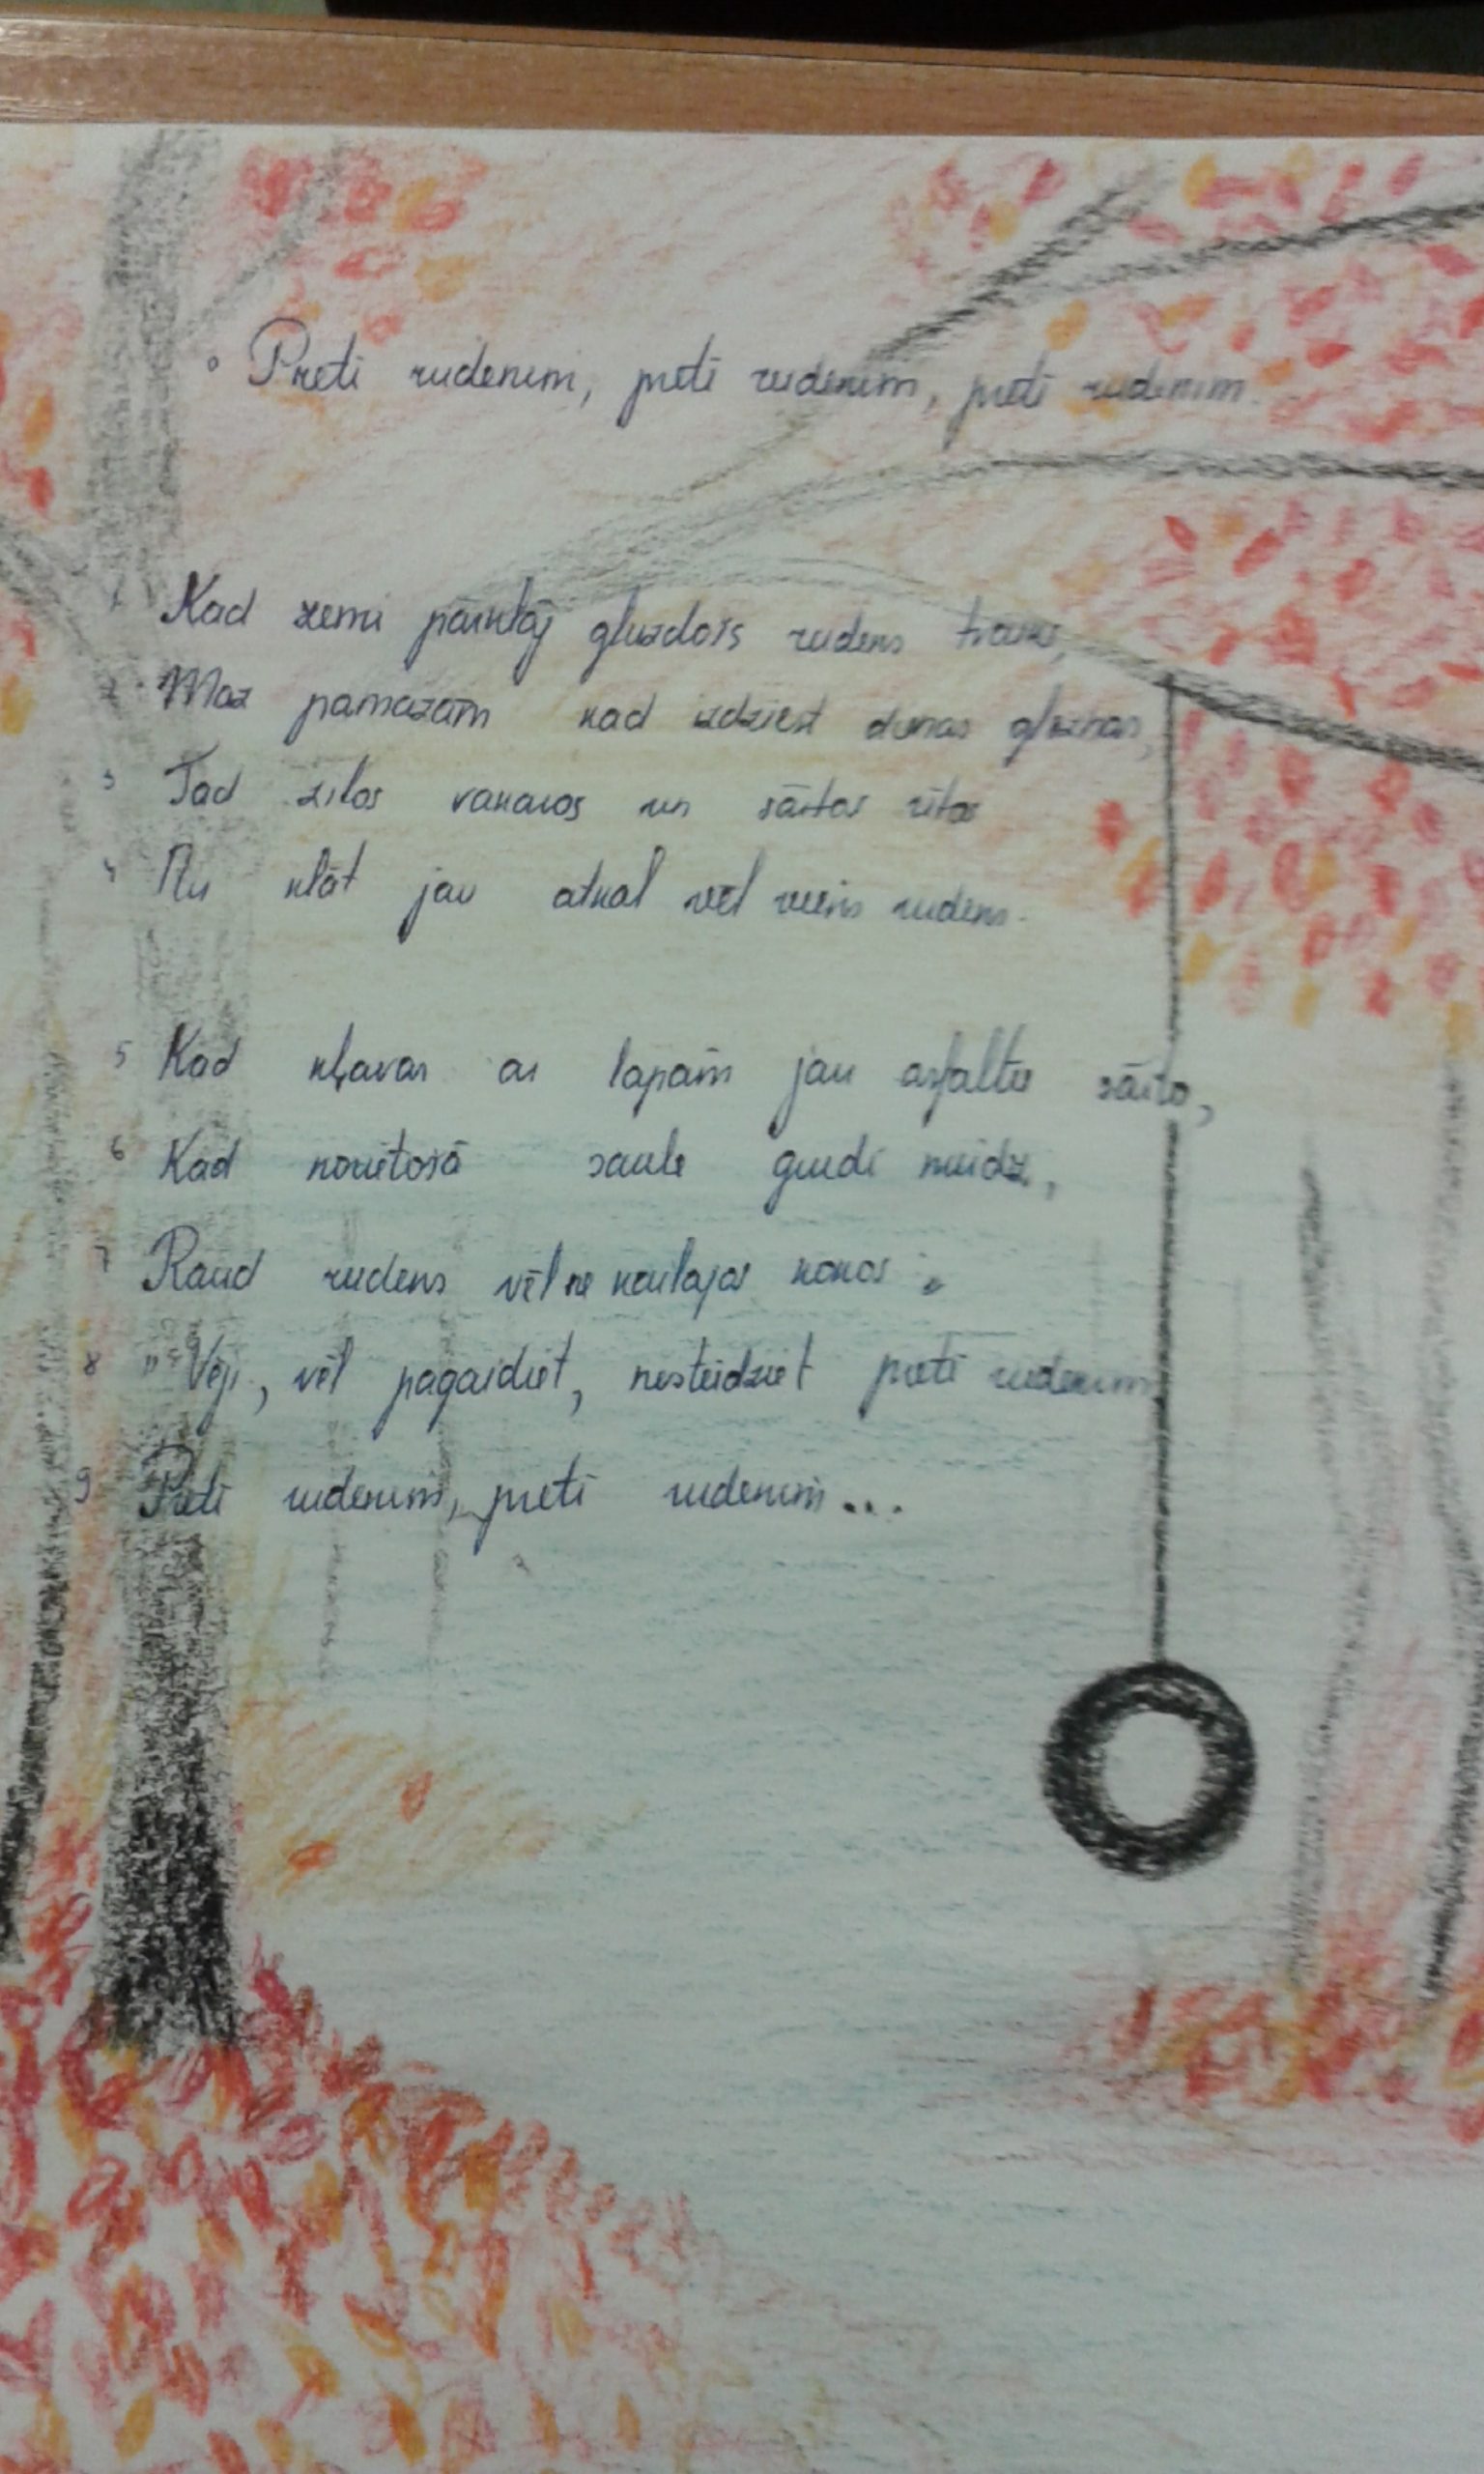 ° Preti rudenim, preti rudenim, preti rudenim.
Kad zemi pārklāj rudens
2 Maz pamazām kad izdziest
3 Tad zilos vakaros un sārtos rītos
4 Nu klāt jau atkal vēl viens rudens.
5 Kad kļavas ar lapām jau asfaltu sārto,
6 Kad norietošā saule gurdi mirdz,
7 Raud rudens vēl ne kailajos kokos :
8 "Vēji, vēl pagaidiet, nesteidziet preti rudenim
9 Preti rudenim, preti rudenim...